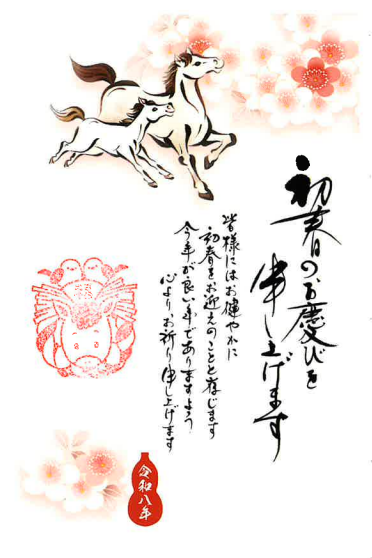 初春のお慶びを
申し上げます
皆様にはお健やかに
初春をお迎えのことと存じます
今年が良い年でありますよう
心よりお祈り申し上げます
令和八年